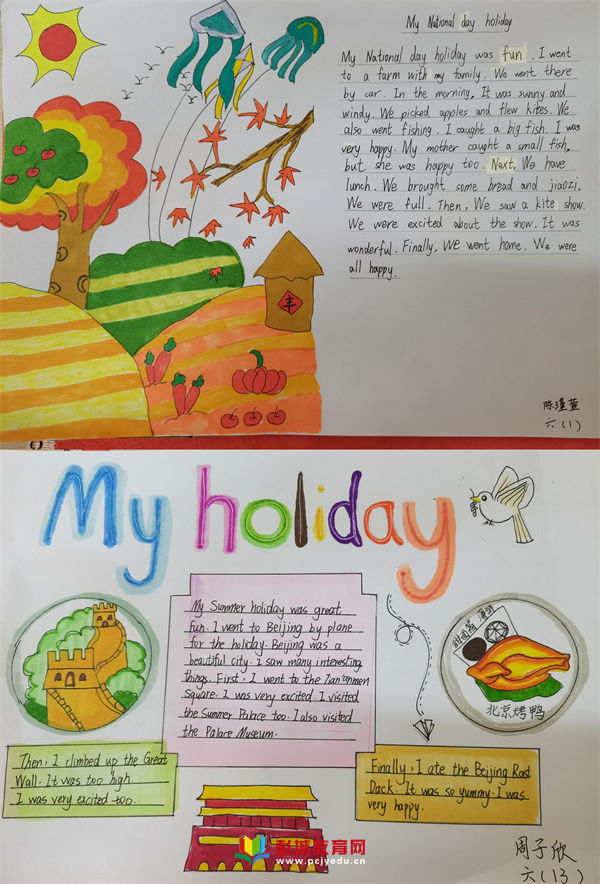 My National day holiday
My National day holiday was fun. I went
to a farm with my family. We went there
by car. In the morning, It was sunny and
windy. We picked apples and flew kites. We
also went fishing. I caught a big fish. I was
very happy. My mother caught a small fish,
but she was happy too. Next, We have
lunch. We brought some bread and jiaozi.
We were full. Then, We saw a kite show.
We were excited about the show. It was
wonderful. Finally, We went home. We were
all happy.
丰
陈瑾萱
六(1)
My holiday
My Summer holiday was great
fun. I went to Beijing by plane
for the holiday. Beijing was a
beautiful city. I saw many interesting
things. First. I went to the Tian'anmen
Square. I was very excited. I visited
the Summer Palace too. I also visited
the Palace Museum.
甜面酱 薄饼
北京烤鸭
Then, I climbed up the Great
Wall. It was too high.
I was very excited too.
Finally, I ate the Beijing Rast
Dack. It was so yummy. I was
very happy.
教育网
www.pcjyedu.cn
周子欣
六(13)